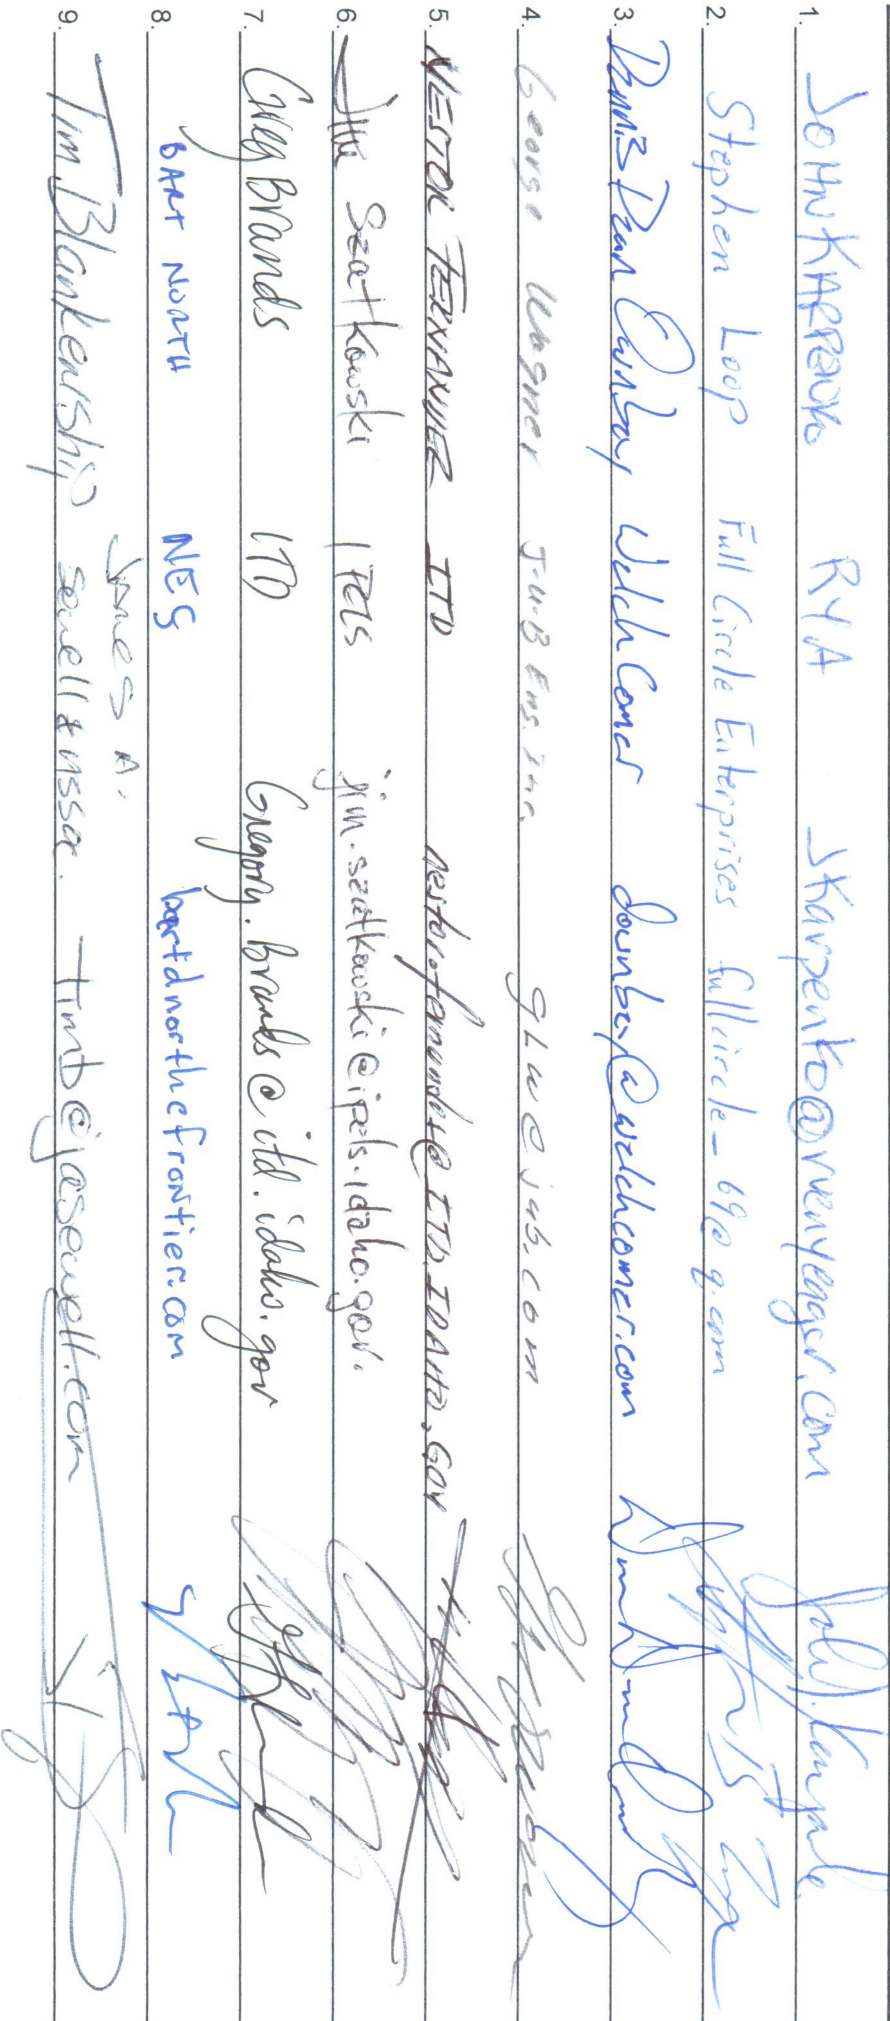 1. JOHN KARPENKO RYA JKarpenko@rvenyeager.com
2. Stephen Loop Full Circle Enterprises fullcircle_69@q.com
3. Dennis Dean Ownbey Welch Comer downbey@welchcomer.com
4. George Wagner J-U-B Eng. Inc. gLw@jub.com
5. NESTOR FERNANDEZ ITD nestor.fernandez@ITD.IDAHO.GOV
6. Jim Szatkowski IPELS jim.szatkowski@ipels.idaho.gov.
7. Greg Brands ITD Gregory.brands@itd.idaho.gov
8. BART NORTH NES bartdnorth@frontier.com
James A.
9. Tim Blankenship Sewell & Assoc. timb@jasewell.com